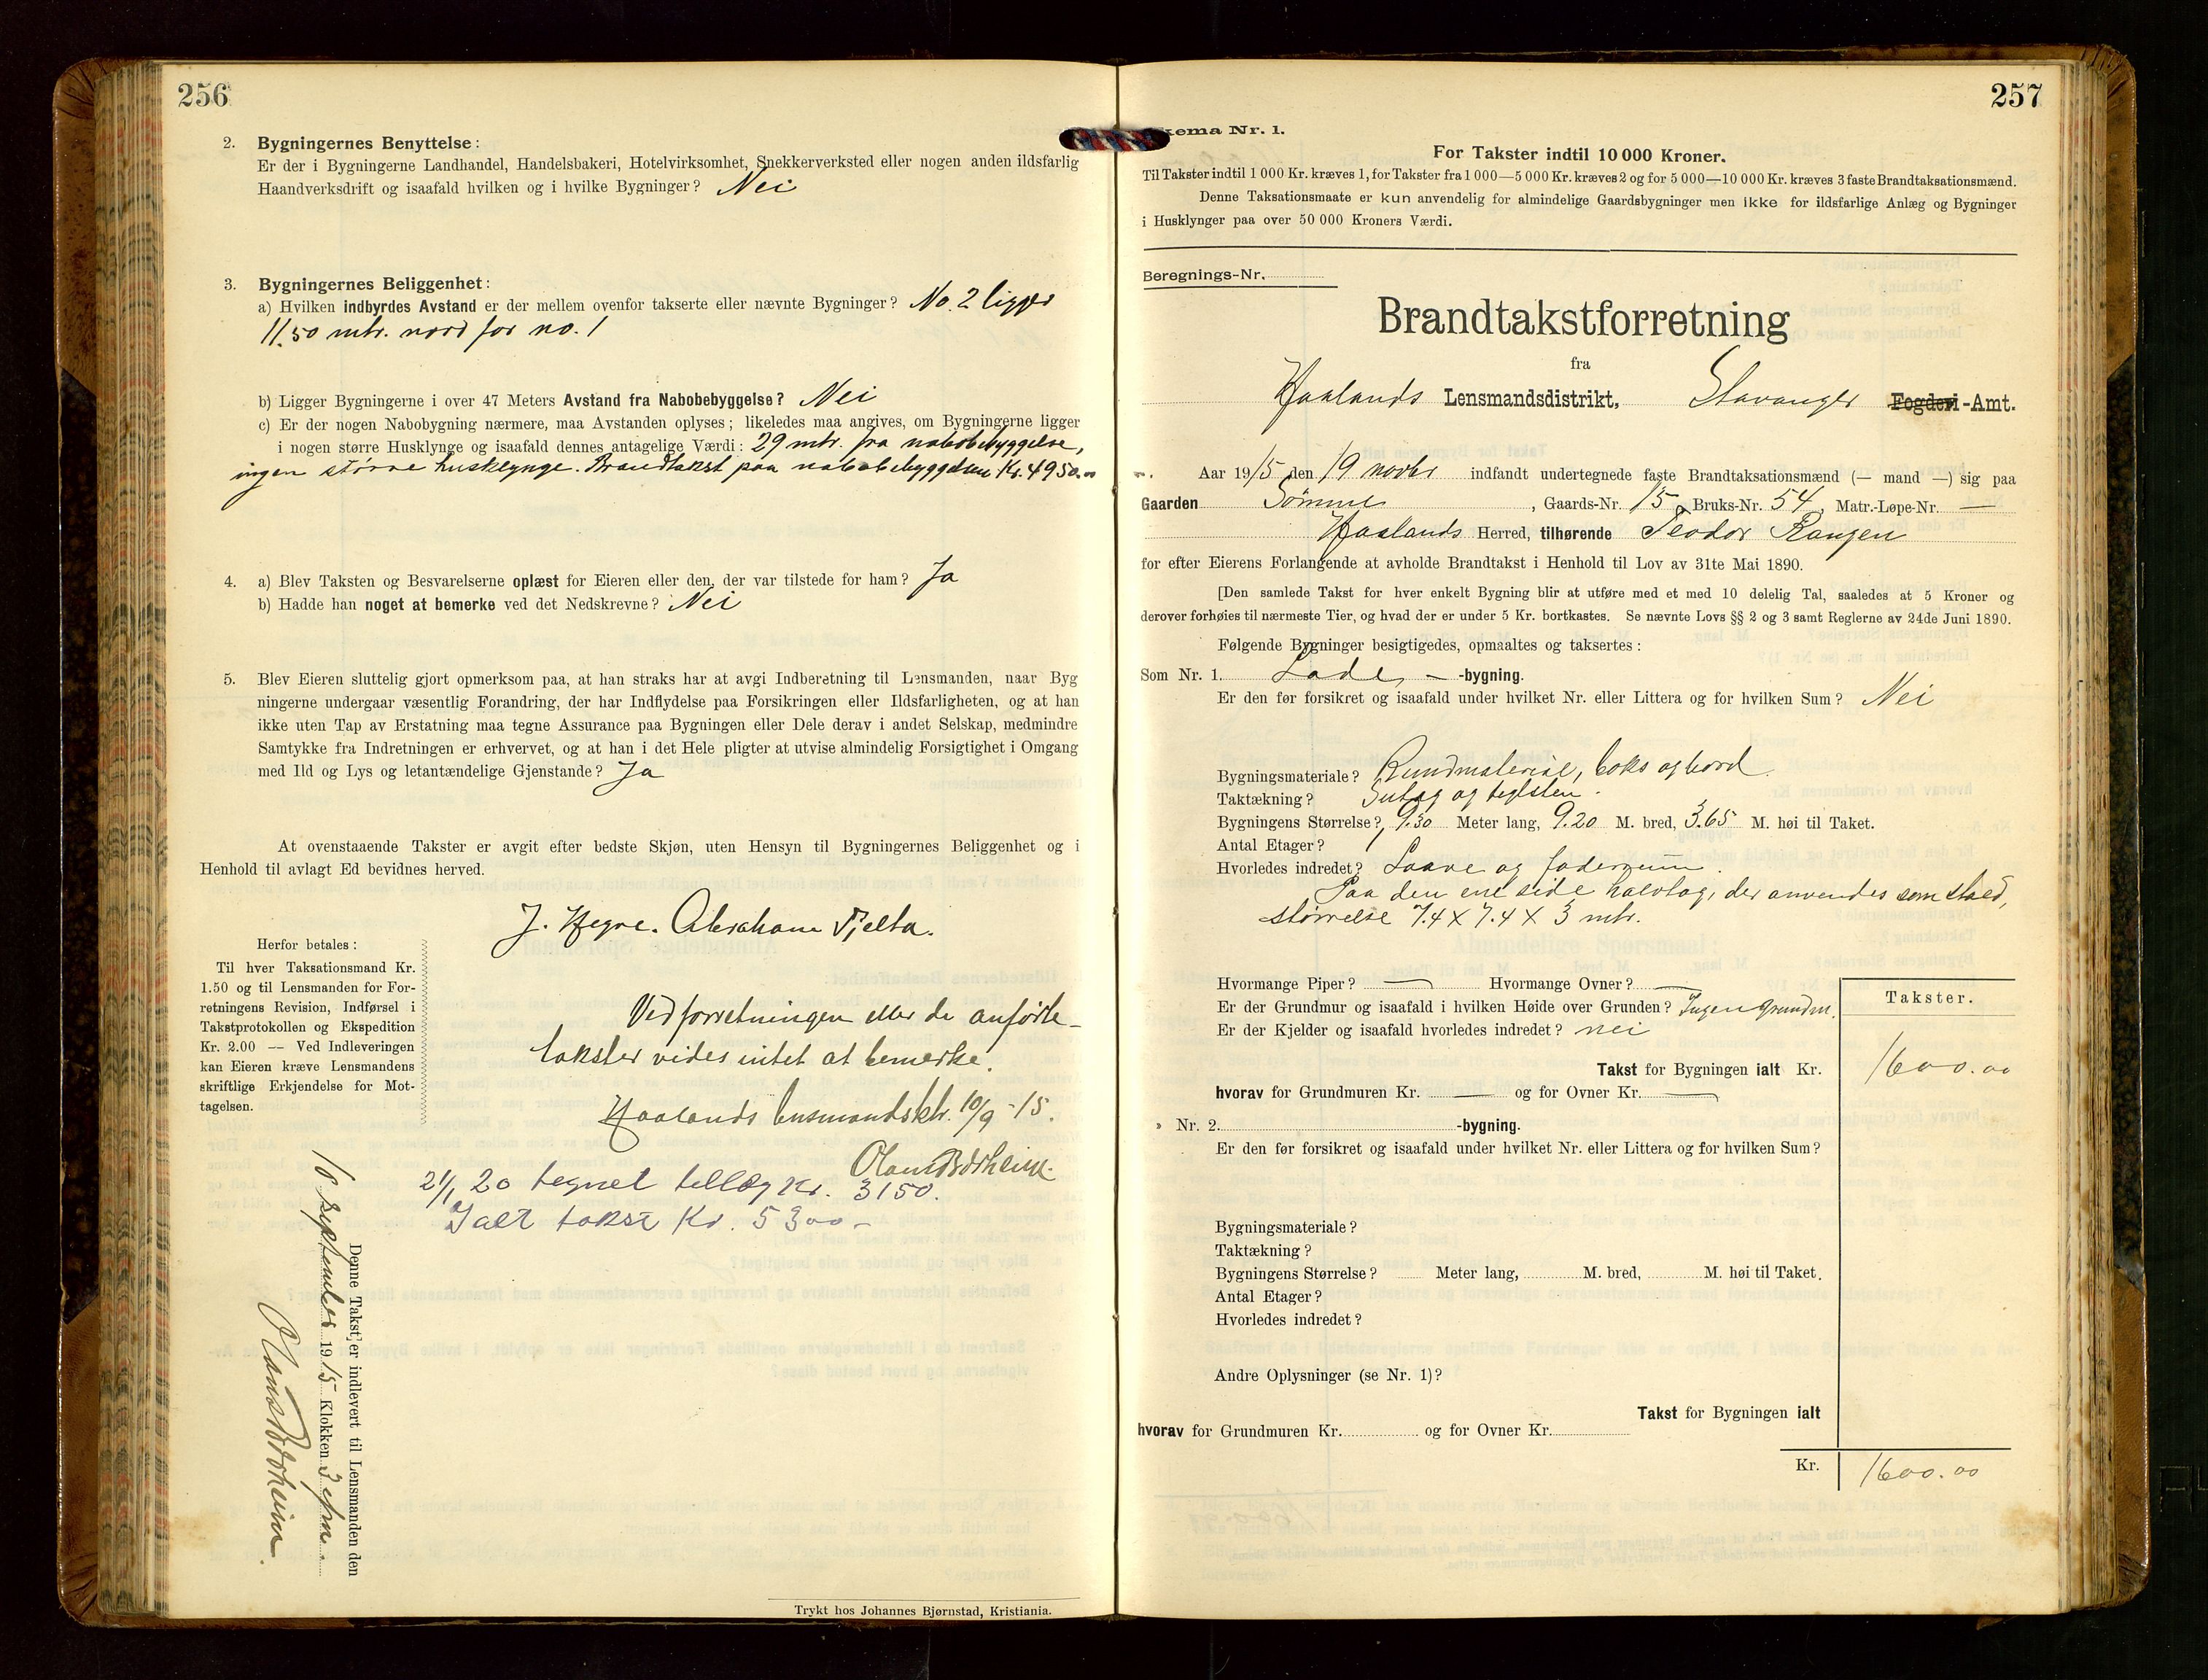 256
2. Bygningernes Benyttelse:
Er der i Bygningerne Landhandel, Handelsbakeri, Hotelvirksomhet, Snekkerverksted eller nogen anden ildsfarlig
Haandverksdrift og isaafald hvilken og i hvilke Bygninger? Nei
3. Bygningernes Beliggenhet:
a) Hvilken indbyrdes Avstand er der mellem ovenfor takserte eller nævnte Bygninger? No. 2 ligger
11.50 mtr. nord for no. 1
b) Ligger Bygningerne i over 47 Meters Avstand fra Nabobebyggelse? Nei
c) Er der nogen Nabobygning nærmere, maa Avstanden oplyses; likeledes maa angives, om Bygningerne ligger
i nogen større Husklynge og isaafald dennes antagelige Værdi: 29 mtr. fra nabobebyggelse,
ingen større husklynge. Brandtakst paa nabobebyggelsen Kr. 4950.
4. a) Blev Taksten og Besvarelserne oplæst for Eieren eller den, der var tilstede for ham? Ja
b) Hadde han noget at bemerke ved det Nedskrevne? Nei
5. Blev Eieren sluttelig gjort opmerksom paa, at han straks har at avgi Indberetning til Lensmanden, naar Byg
ningerne undergaar væsentlig Forandring, der har Indflydelse paa Forsikringen eller Ildsfarligheten, og at han
ikke uten Tap av Erstatning maa tegne Assurance paa Bygningen eller Dele derav i andet Selskap, medmindre
Samtykke fra Indretningen er erhvervet, og at han i det Hele pligter at utvise almindelig Forsigtighet i Omgang
med Ild og Lys og letantændelige Gjenstande? Ja
At ovenstaaende Takster er avgit efter bedste Skjøn, uten Hensyn til Bygningernes Beliggenhet og i
Henhold til avlagt Ed bevidnes herved.
J. Hegre. Abraham Tjelta.
Herfor betales:
Til hver Taksationsmand Kr.
1.50 og til Lensmanden for For-
retningens Revision, Indførsel i
Takstprotokollen og Ekspedition
Kr. 2.00 — Ved Indleveringen
kan Eieren kræve Lensmandens
skriftlige Erkjendelse for Mot-
tagelsen.
Ved forretningen eller de anførte
takster vides intet at bemerke.
Haalands lensmandsktr. 10/9-15.
21/1 20 tegnet tillæg Kr. 3150.
Ialt takst Kr. 5300-
Denne Takst er indlevert til Lensmanden den
10 september 1915 Klokken 3 efm.
Trykt hos Johannes Bjørnstad, Kristiania.
257
kema Nr. 1.
For Takster indtil 10 000 Kroner.
Til Takster indtil 1 000 Kr. kræves 1, for Takster fra 1 000—5 000 Kr. kræves 2 og for 5 000—10 000 Kr. kræves 3 faste Brandtaksationsmænd.
Denne Taksationsmaate er kun anvendelig for almindelige Gaardsbygninger men ikke for ildsfarlige Anlæg og Bygninger
i Husklynger paa over 50 000 Kroners Værdi.
Beregnings-Nr.
Brandtakstforretning
fra
Haalands Lensmandsdistrikt, Stavanger Fogderi-Amt.
Aar 1915 den 19 novbr indfandt undertegnede faste Brandtaksationsmænd (— mand —) sig paa
Gaarden Sømme, Gaards-Nr. 15, Bruks-Nr. 54, Matr.-Løpe-Nr. —
Haalands Herred, tilhørende Teodor Rangen
for efter Eierens Forlangende at avholde Brandtakst i Henhold til Lov av 31te Mai 1890.
[Den samlede Takst for hver enkelt Bygning blir at utføre med et med 10 delelig Tal, saaledes at 5 Kroner og
derover forhøies til nærmeste Tier, og hvad der er under 5 Kr. bortkastes. Se nævnte Lovs §§ 2 og 3 samt Reglerne av 24de Juni 1890.
Følgende Bygninger besigtigedes, opmaaltes og taksertes:
Som Nr. 1. Lade - -bygning.
Er den før forsikret og isaafald under hvilket Nr. eller Littera og for hvilken Sum? Nei
Bygningsmateriale? Rundmateriale, boks og bord
Taktækning? Sutag og teglsten.
Bygningens Størrelse? 9.30 Meter lang, 9.20 M. bred, 3.65 M. høi til Taket.
Antal Etager? 1
Hvorledes indredet? Laave og foderrum.
Paa den ene side halvtag, der anvendes som stald,
størrelse 7.4 x 7.4 x 3 mtr.
Hvormange Piper? — Hvormange Ovner? —
Er der Grundmur og isaafald i hvilken Høide over Grunden? Ingen grundm.
Er der Kjelder og isaafald hvorledes indredet? nei
Takster.
Takst for Bygningen ialt Kr. 1600.00
hvorav for Grundmuren Kr. — og for Ovner Kr. —
» Nr. 2. -bygning.
Er den før forsikret og isaafald under hvilket Nr. eller Littera og for hvilken Sum?
Bygningsmateriale?
Taktækning?
Bygningens Størrelse? Meter lang, M. bred, M. høi til Taket.
Antal Etager?
Hvorledes indredet?
Andre Oplysninger (se Nr. 1)?
Takst for Bygningen ialt
hvorav for Grundmuren Kr. og for Ovner Kr.
Kr. 1600.00